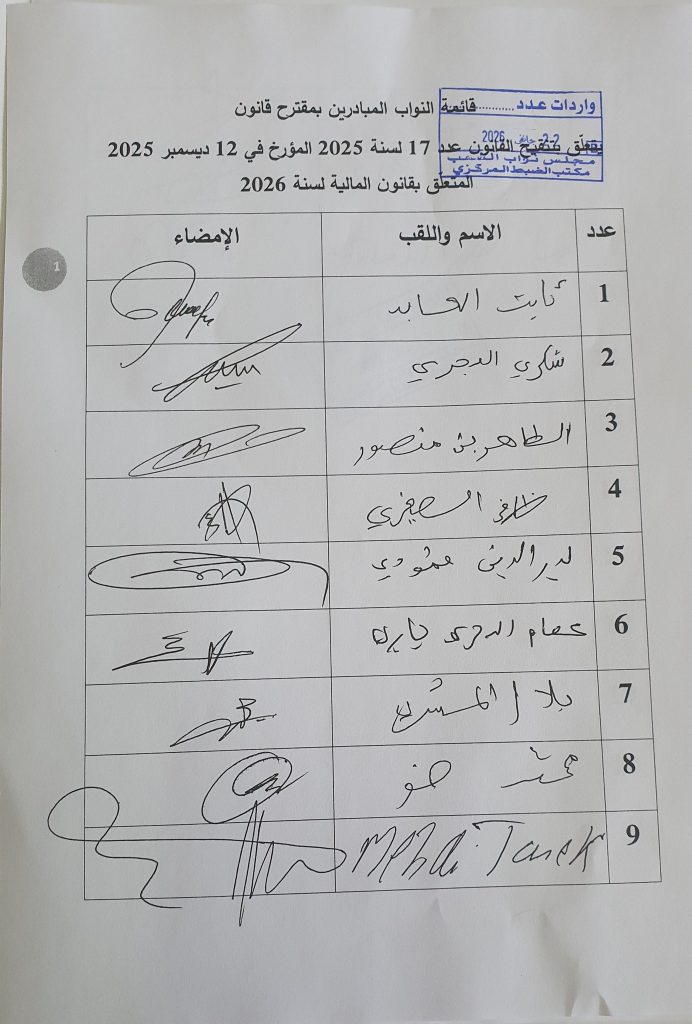 واردات عدد............
22 جانفي 2026
مجلس نواب الشعب
مكتب الضبط المركزي
قائمة النواب المبادرين بمقترح قانون
يتعلّق بتنقيح القانون عدد 17 لسنة 2025 المؤرخ في 12 ديسمبر 2025
المتعلّق بقانون المالية لسنة 2026
عدد الاسم واللقب الإمضاء
1 ثابت العابد
2 شكري البحري
3 الطاهر بن منصور
4 ظافر الصغيري
5 بدر الدين
6 عصام البحري
7 بلال المشري
8 محمد ضو
9 Mehdi Tarek
1